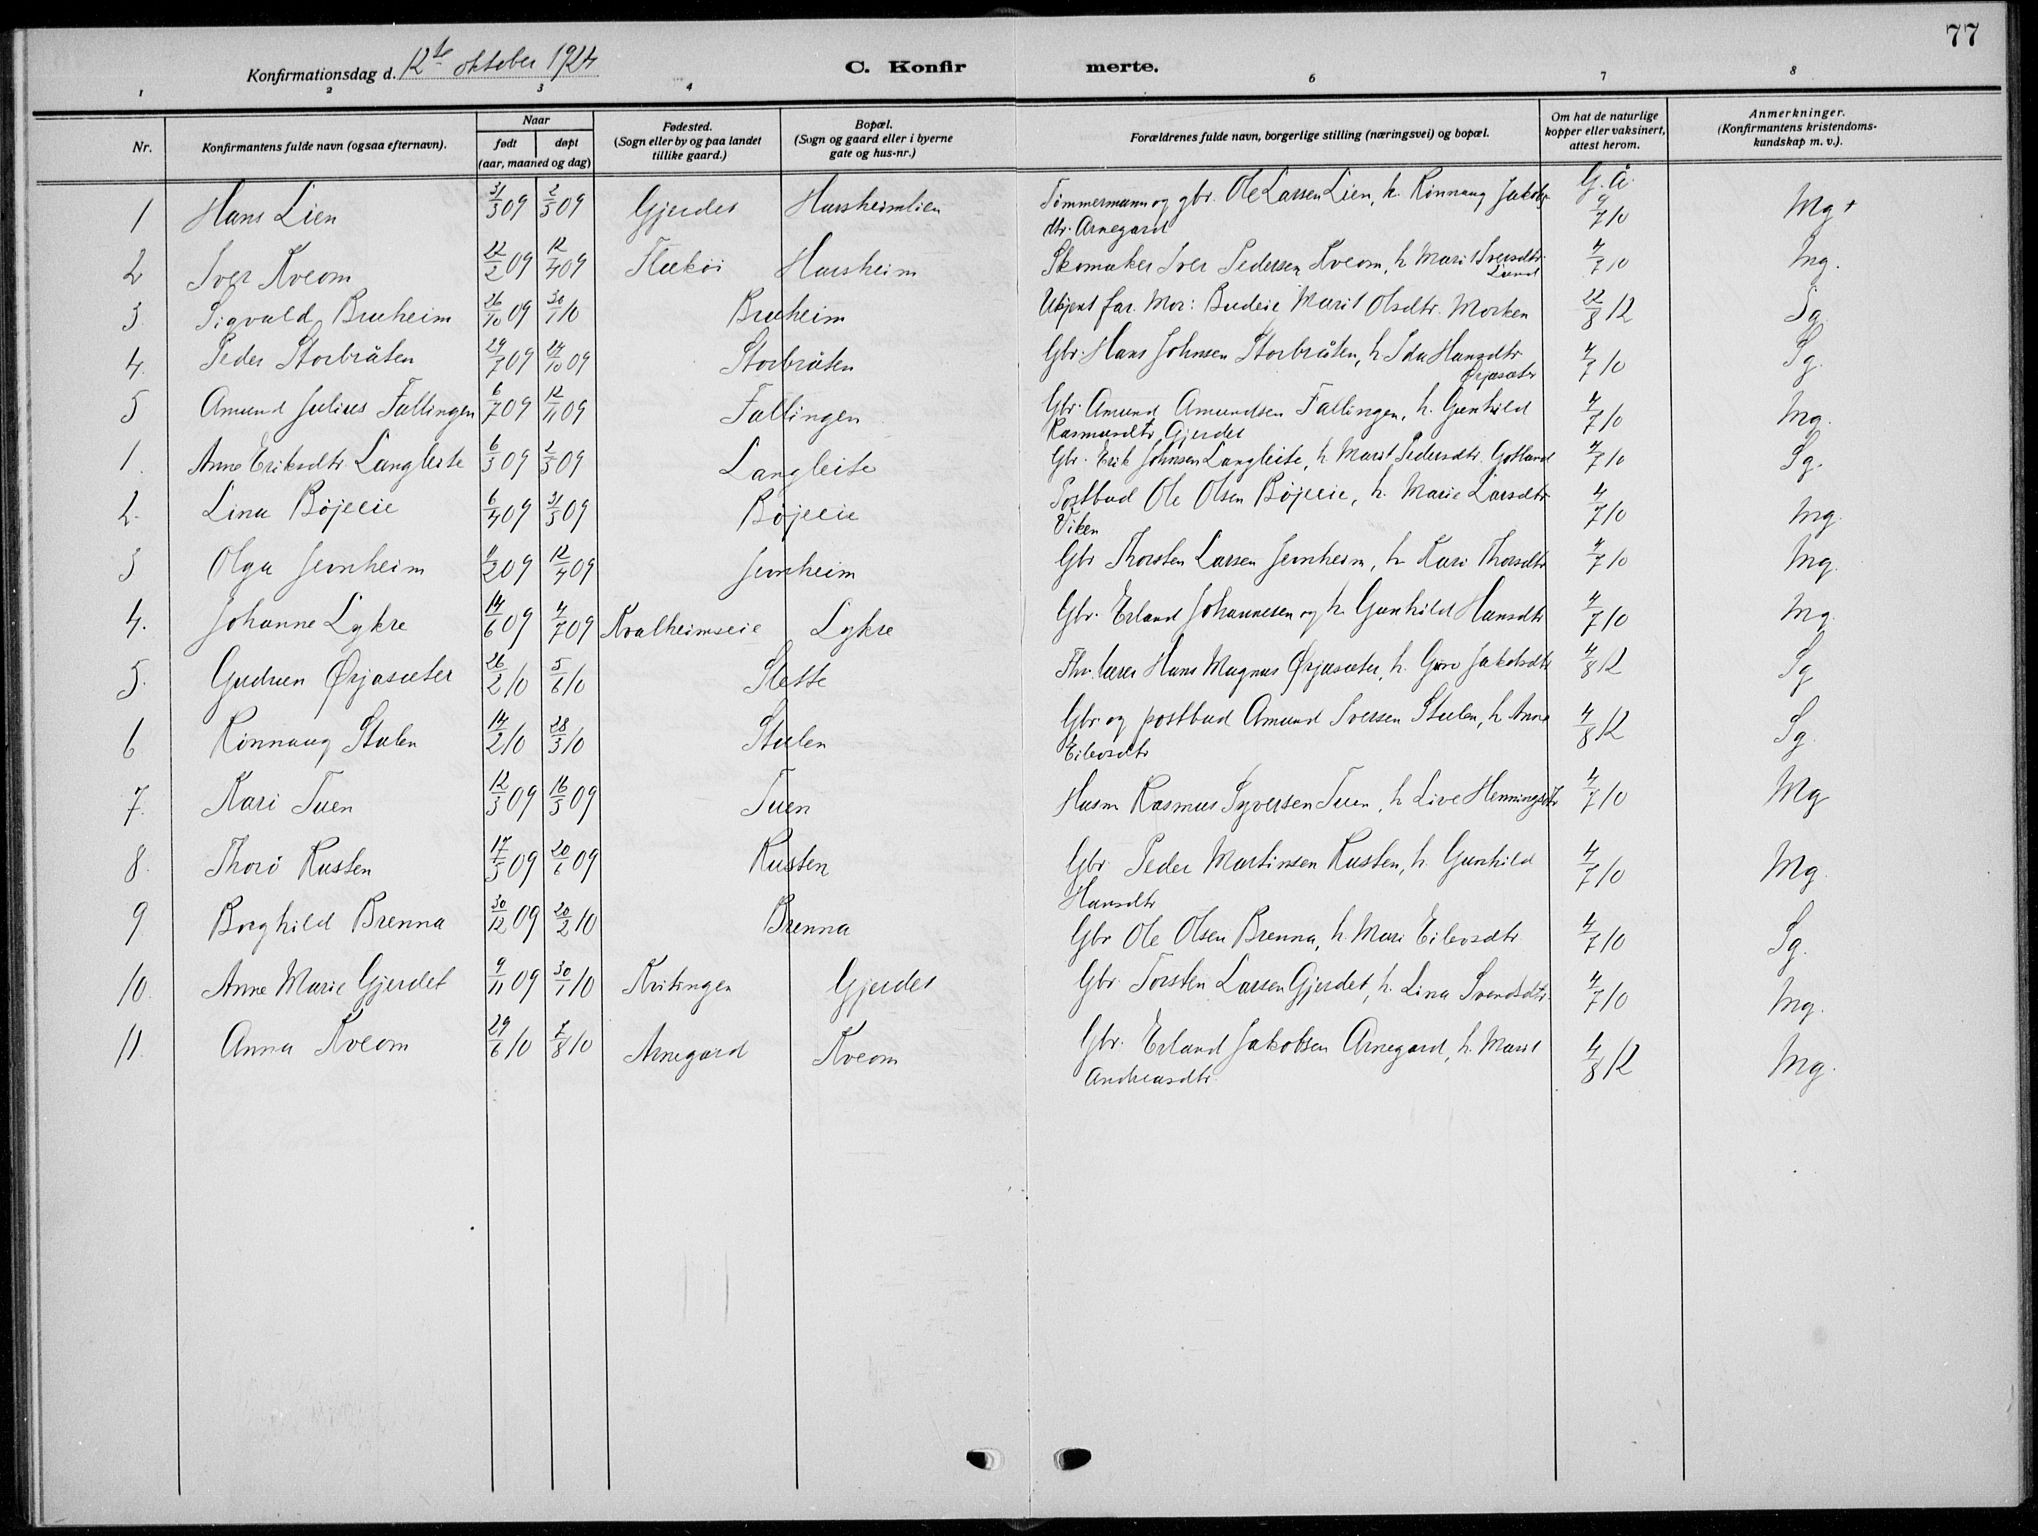 77
Konfirmationsdag d. 12te oktober 1924
C. Konfir merte.
1 2 3 4 6 7 8
Nr. Konfirmantens fulde navn (ogsaa efternavn). Naar født døpt (aar, maaned og dag) Fødested. (Sogn eller by og paa landet tillike gaard.) Bopæl. (Sogn og gaard eller i byerne gate og hus-nr.) Forældrenes fulde navn, borgerlige stilling (næringsvei) og bopæl. Om hat de naturlige kopper eller vaksinert, attest herom. Anmerkninger. (Konfirmantens kristendoms-kundskap m. v.).
G. Å.
1 Hans Lien 31/3 09 2/5 09 Gjerdet Harsheimlien Tømmermann og gbr. Ole Larsen Lien, h. Rønnaug Jakobs- 4/7 10 Mg +
dtr. Arnegard
2 Iver Kveom 22/2 09 12/4 09 Flækøi Harsheim Skomaker Iver Pedersen Kveom, h. Marit Iversdtr. 4/7 10 Mg.
Lund
3. Sigvald Bruheim 26/10 09 30/1 10 Bruheim Ukjent far. Mor: Budeie Marit Olsdtr. Morken 22/8 12 Sg.
4. Peder Storbråten 29/7 09 24/10 09 Storbråten Gbr. Hans Johnsen Storbråten, h. Ida Hansdtr. 4/7 10 Sg.
Ørjasæter
5 Amund Julius Fallingen 6/7 09 12/11 09 Fallingen Gbr. Amund Amundsen Fallingen, h. Gunhild 4/7 10 Mg.
Rasmusdtr. Gjerdet
1. Anne Eriksdtr. Langleite 6/3 09 2/5 09 Langleite Gbr. Erik Johnsen Langleite, h. Marit Pedersdtr. Gotland 4/7 10 Sg.
2. Lina Bøjeeie 6/4 09 31/5 09 Bøjeeie Postbud Ole Olsen Bøjeeie, h. Marie Larsdtr. 4/7 10 Mg.
Viken
3 Olga Jevnheim 4/2 09 12/4 09 Jevnheim Gbr. Thorsten Larsen Jevnheim, h. Kari Thorsdtr. 4/7 10 Mg.
4. Johanne Lykre 14/6 09 4/7 09 Kvalheimseie Lykre Gbr. Erland Johannesen og h. Gunhild Hansdtr. 4/7 10 Mg.
5. Gudrun Ørjasæter 26/2 10 5/6 10 Slette Thv. lærer Hans Magnus Ørjasæter, h. Guro Jakobsdtr. 4/8 12 Sg
6 Rønnaug Stulen 14/2 10 28/3 10 Stulen Gbr. og postbud Amund Iversen Stulen, h. Anne 4/8 12 Sg.
Eilevsdtr.
7. Kari Tuen 12/3 09 16/5 09 Tuen Husm Rasmus Syversen Tuen, h. Live Henningsdtr. 4/7 10 Mg
8. Thorø Rusten 17/5 09 20/6 09 Rusten Gbr. Peder Martinsen Rusten, h. Gunhild 4/7 10 Mg.
Hansdtr
9. Borghild Brenna 30/12 09 20/2 10 Brenna Gbr. Ole Olsen Brenna, h. Mari Eilevsdtr. 4/7 10 Sg.
10. Anne Marie Gjerdet 9/11 09 30/1 10 Kvitingen Gjerdet Gbr. Torsten Larsen Gjerdet, h. Lina Svendsdtr. 4/7 10 Mg.
11. Anna Kveom 29/6 10 7/8 10 Arnegard Kveom Gbr. Erland Jakobsen Arnegard, h. Marit 4/8 12 Mg.
Andreasdtr.